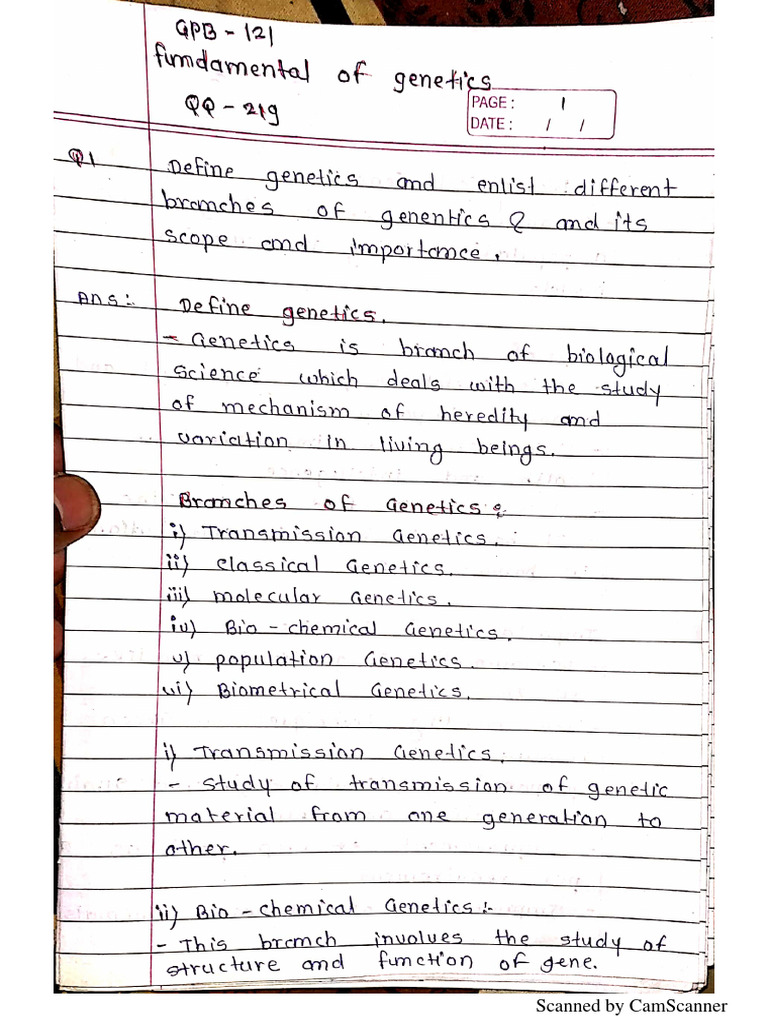 GPB - 121
fumdamental of genetics
QQ - 219
PAGE: 1
DATE: / /
Q1 Define genetics and enlist different
branches of genentics & and its
scope and importance.
Ans:- Define genetics.
- Genetics is branch of biological
science which deals with the study
of mechanism of heredity and
variation in living beings.
Branches of Genetics :
i) Transmission Genetics.
ii) classical Genetics.
iii) molecular Genetics.
iv) Bio-chemical Genetics.
v) population Genetics.
vi) Biometrical Genetics.
i) Transmission Genetics.
- study of transmission of genetic
material from one generation to
other.
ii) Bio-chemical Genetics :-
- This branch involves the study of
structure and function of gene.
Scanned by CamScanner